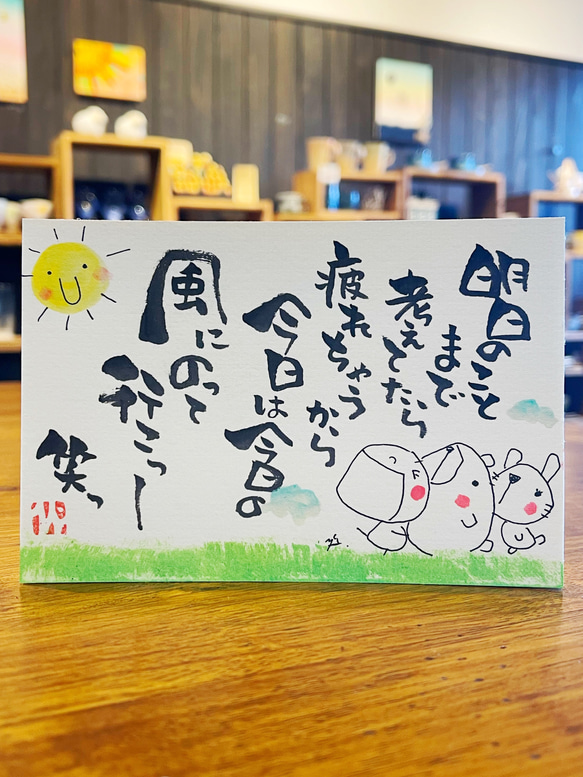 明日のこと
まで
考えてたら
疲れちゃう
から
今日は今日の
風にのって
行こっー
笑っ